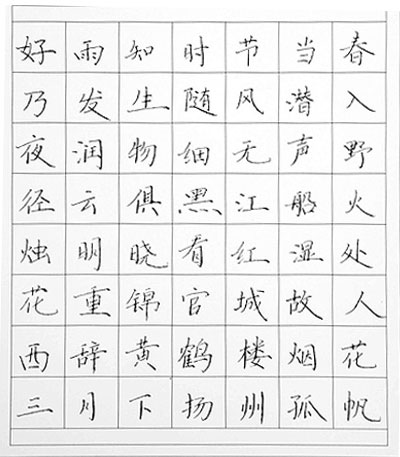 好雨知时节当春
乃发生随风潜入
夜润物细无声野
径云俱黑江船火
烛明晓看红湿处
花重锦官城故人
西辞黄鹤楼烟花
三月下扬州孤帆